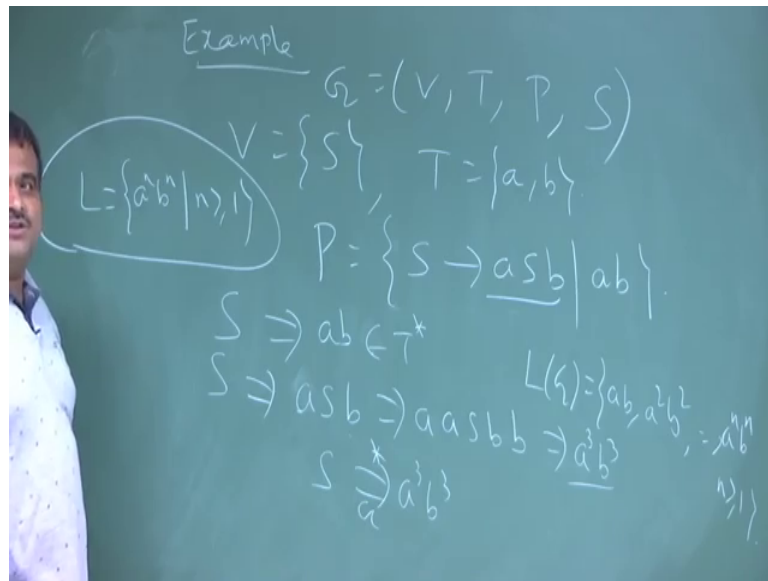 Example
G = (V, T, P, S)
V = {S}, T = {a, b}
L = {aⁿbⁿ | n ≥ 1}
P = {S → aSb | ab}.
S ⇒ ab ∈ T*
S ⇒ aSb ⇒ aaSbb ⇒ a³b³
L(G) = {ab, a²b², = aⁿbⁿ
n ≥ 1}
S ⇒* G a³b³